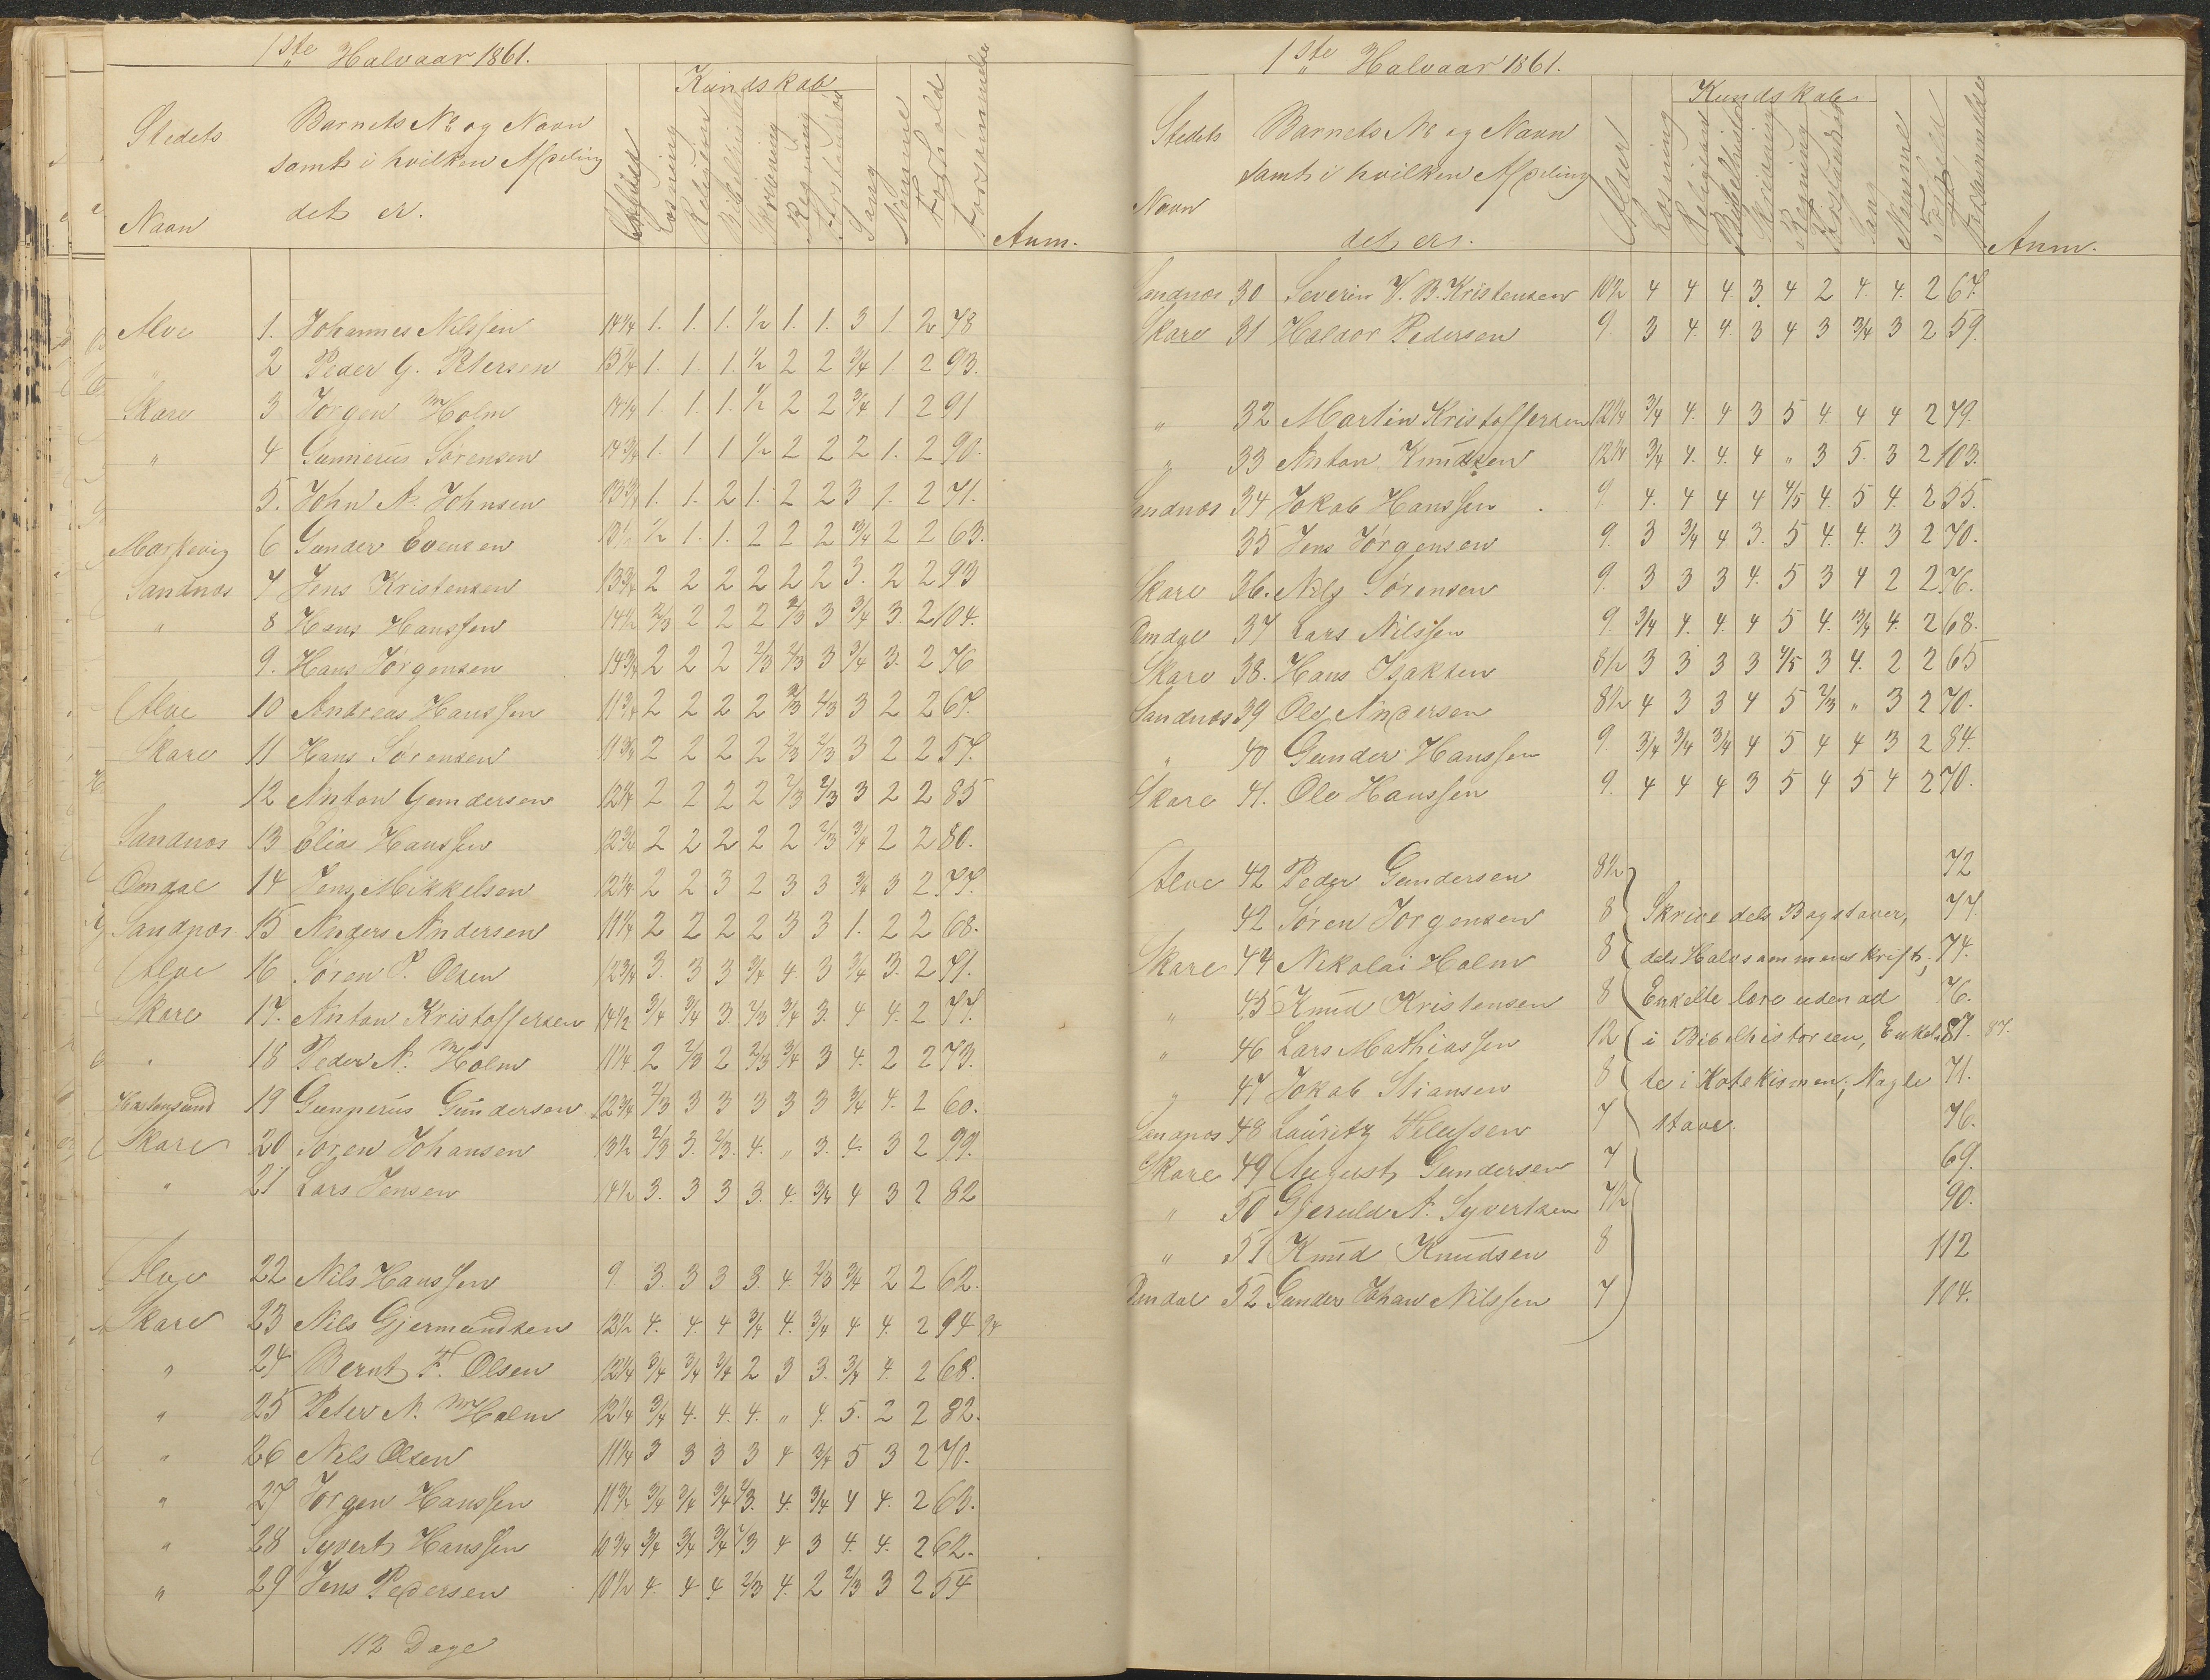 1ste Halvaar 1861.
Kundskab
Stedets Navn
Barnets No og Navn
samt i hvilken Afdeling
det er.
Læsning Religion Bibelhistorie Skrivning Regning Forstandsøv Sang Nemme Forhold Forsømmelse Anm.
Alve 1. Johannes Nilssen 14¼ 1. 1. 1. ½ 1. 1. 3 1 2 78
" 2 Peder G. Petersen 13¼ 1. 1 1. ½ 2 2 ¾ 1. 2 93.
Skare 3 Jørgen Holm 14¼ 1 1. 1. ½ 2 2 ¾ 1 2 91
" 4 Gunnerius Sørensen 14¾ 1. 1 1 ½ 2 2 2 1. 2 90.
5. John N. Johnsen 13¾ 1. 1. 2 1. 2 2 3 1. 2 71.
6 Gunder Evensen 13½ ½ 1. 1. 2 2 2 ¾ 2 2 63.
Sandnæs 7 Jens Kristensen 13¾ 2 2 2 2 2 2 3. 2 2 93
" 8 Hanssen 14½ 2/3 2 2 2 2/3 3 ¾ 3. 2 104.
9. Hans Jørgensen 14¾ 2 2 2 2/3 2/3 3 ¾ 3. 2 76
Alve 10 Andreas Hanssen 11¾ 2 2 2 2 2/3 2/3 3 2 2 67.
Skare 11 Hans Sørensen 11¾ 2 2 2 2 2/3 2/3 3 2 2 57.
12 Anton Gundersen 12¼ 2 2 2 2 2/3 2/3 3 2 2 85
Sandnæs 13 Elias Hanssen 12¾ 2 2 2 2 2 2/3 ¾ 2 2 80.
Omdal 14 Jens Mikkelsen 12¼ 2 2 3 2 3 3 ¾ 3 2 77.
Sandnæs 15 Anders Andersen 11¼ 2 2 2 2 3 3 1. 2 2 68.
Alve 16 Søren P. Olsen 12¾ 3. 3 3 ¾ 4 3 ¾ 3. 2 71.
Skare 17. Anton Kristoffersen 14½ ¾ ¾ 3. 2/3 ¾ 3. 4 4. 2 77.
" 18 Peder N. Holm 11¼ 2 2/3 2 2/3 ¾ 3 4. 2 2 73.
19 Gunnerius Gundersen 12¾ 2/3 3 3 3 3 3 ¾ 4. 2 60.
Skare 20 Søren Johansen 13½ 2/3 3. 2/3. 4. " 3. 4. 3 2 99.
" 21 Lars Jensen 14½ 3. 3 3 3. 4. ¾ 4 3 2 82
Alve 22 Nils Hanssen 9 3. 3 3 3. 4. 2/3 ¾ 2 2 62.
Skare 23 Nils Gjermundsen 13½ 4. 4. 4 ¾ 4. ¾ 4 4. 2 94 94
" 24 Bernt F. Olsen 12¼ ¾ ¾ ¾ 2 3 3. ¾ 4. 2 68.
" 25 Peter N. Holm 12¼ ¾ 4. 4. 4. " 4. 5. 2 2 82.
" 26 Nils Olsen 11¼ 3 3 3 3 4 ¾ 5 3 2 70.
" 27 Jørgen Hanssen 11½ ¾ ¾ ¾ 2/3. 4. ¾ 4 4. 2 63.
" 28 Syvert Hanssen 10¾ ¾ ¾ ¾ 2/3 4 3 4. 4. 2 62.
" 29 Jens Pedersen 10½ 4. 4 4 2/3 4. 2 2/3 3 2 54
112 Dage
1ste Halvaar 1861.
Kundskab
Stedets Navn
Barnets No og Navn
samt i hvilken Afdeling
det er.
Alder Læsning Religion Bibelhistorie Skrivning Regning Forstandsøv Sang Nemme Forhold Forsømmelse Anm.
Sandnæs 30 Severin V. B. Kristensen 10½ 4 4 4. 3. 4 2 4. 4. 2 67.
Skare 31 Haldor Pedersen 9. 3 4. 4. 3 4 3 ¾ 3 2 59.
" 32 Martin Kristoffersen 12¼ ¾ 4. 4 3 5 4. 4 4 2 79.
" 33 Anton Knudsen 12¼ ¾ 4. 4. 4 " 3 5. 3 2 103.
Sandnæs 34 Jakob Hanssen 9 4. 4 4 4 4/5 4. 5 4. 2 55.
35 Jens Jørgensen 9. 3 ¾ 4. 3. 5 4. 4. 3 2 70.
Skare 36. Nils Sørensen 9. 3 3 3 4. 5 3 4 2 2 76.
Omdal 37 Lars Nilssen 9 ¾ 4. 4. 4 5 4. ¾ 4. 2 68.
Skare 38. Hans Isaksen 8½ 3 3 3 3 4/5 3 4. 2 2 65
Sandnæs 39 Ole Andersen 8½ 4 3 3 4 5 2/3 " 3 2 70.
" 40 Gunder Hanssen 9. ¾ ¾ ¾ 4 5 4 4 3 2 84.
Skare 41. Ole Hanssen 9. 4 4 4 3 5 4 5 4 2 70.
Alve 42 Peder Gundersen 8½ 72
42 Søren Jørgensen 8 Skrive dels Bogstaver, 77.
Skare 44 Nikolai Holm 8 dels Halvsammenskrift; 74.
" 45 Knud Kristensen 8 Enkelte lære udenad 76.
" 46 Lars Mathiassen 12 i Bibelhistorien, Enkel- 87. 87.
" 47 Jakob Stiansen 8 te i Katekismen; Nogle 71.
Sandnæs 48 Lauritz 7 stave. 76.
Skare 49 August Gundersen 7 69.
" 50 Gjeruld A. Syvertsen 7½ 90.
" 51 Knud Knudsen 8 112
Omdal 52 Gunder Johan Nilssen 7 104.